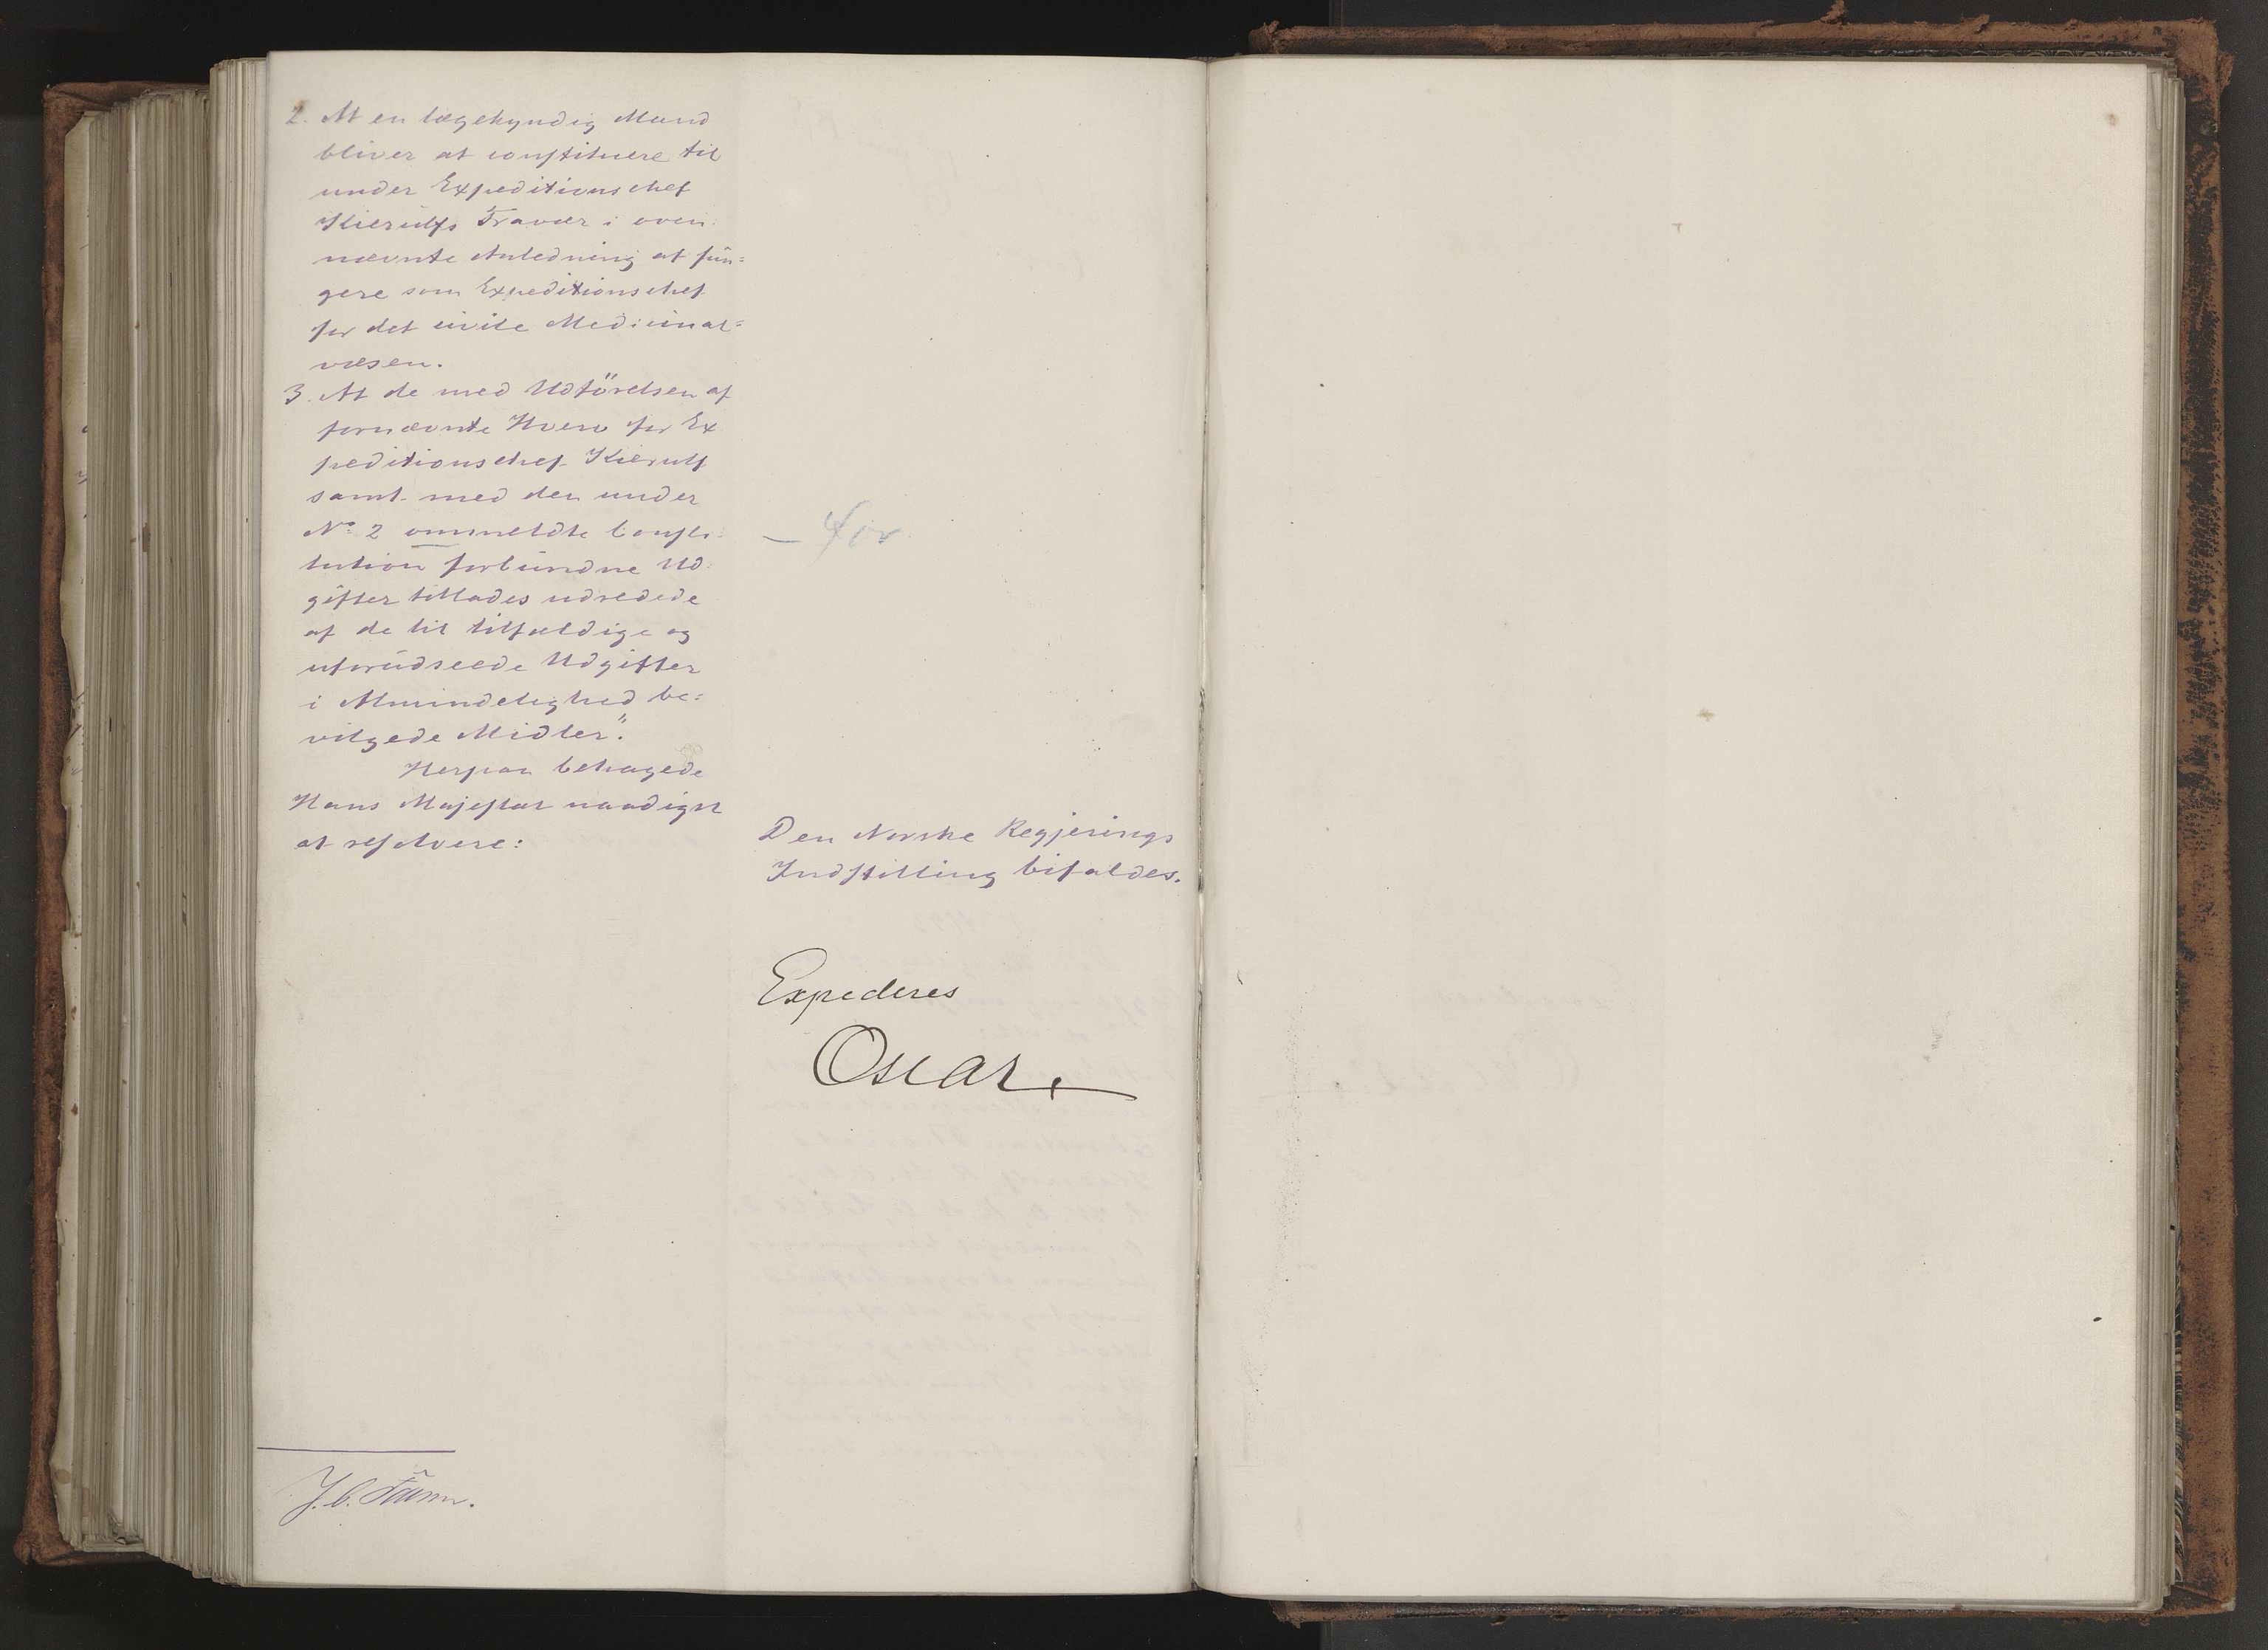 2. At en lægekyndig Mand
bliver at constituere til
under Expeditionschef
Kierulfs Fravær i oven-
nævnte Anledning at fun=
gere som Expeditionschef
for det civile Medicinal=
væsen.
3. At de med Udförelsen af
fornævnte Hverv for Ex
peditionschef Kierulf
samt med den under
No 2 ommeldte Consti-
tution forbundne Ud-
gifter tillades udredede
af de til tilfældige og
uforudseede Udgifter
i Almindelighed be=
vilgede Midler".
Herpaa behagede
Hans Majestæt naadigst
at resolvere:
– for
Den Norske Regjerings
Indstilling bifaldes.
Expederes
Oscar.